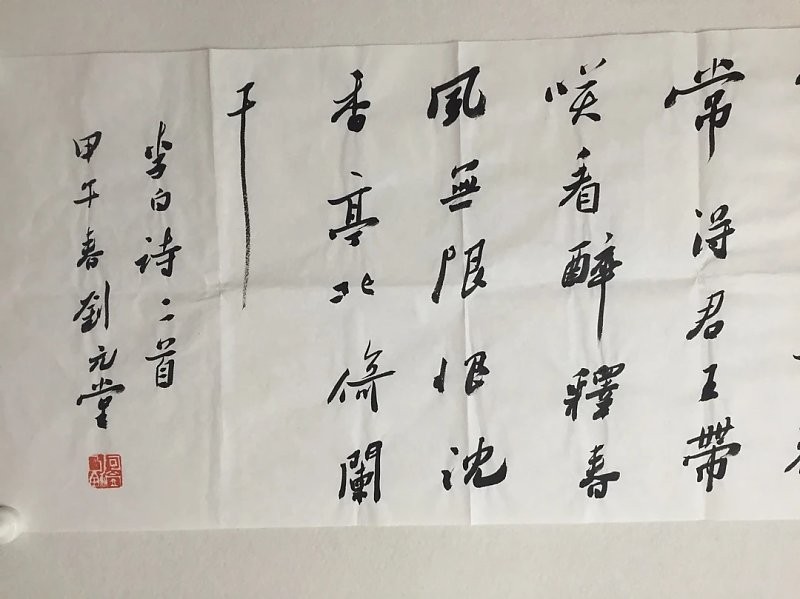 常得君王帶
咲看醉釋春
風無限恨沈
香亭北倚闌
干
李白詩二首
甲午春劉元堂